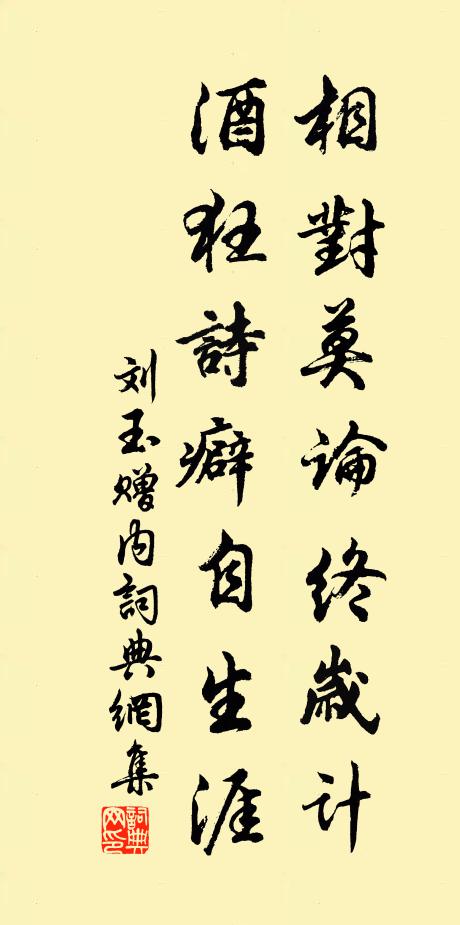 相對莫論終歲計
酒狂詩癖自生涯
刘玉赠内詞典網集
詞典网印